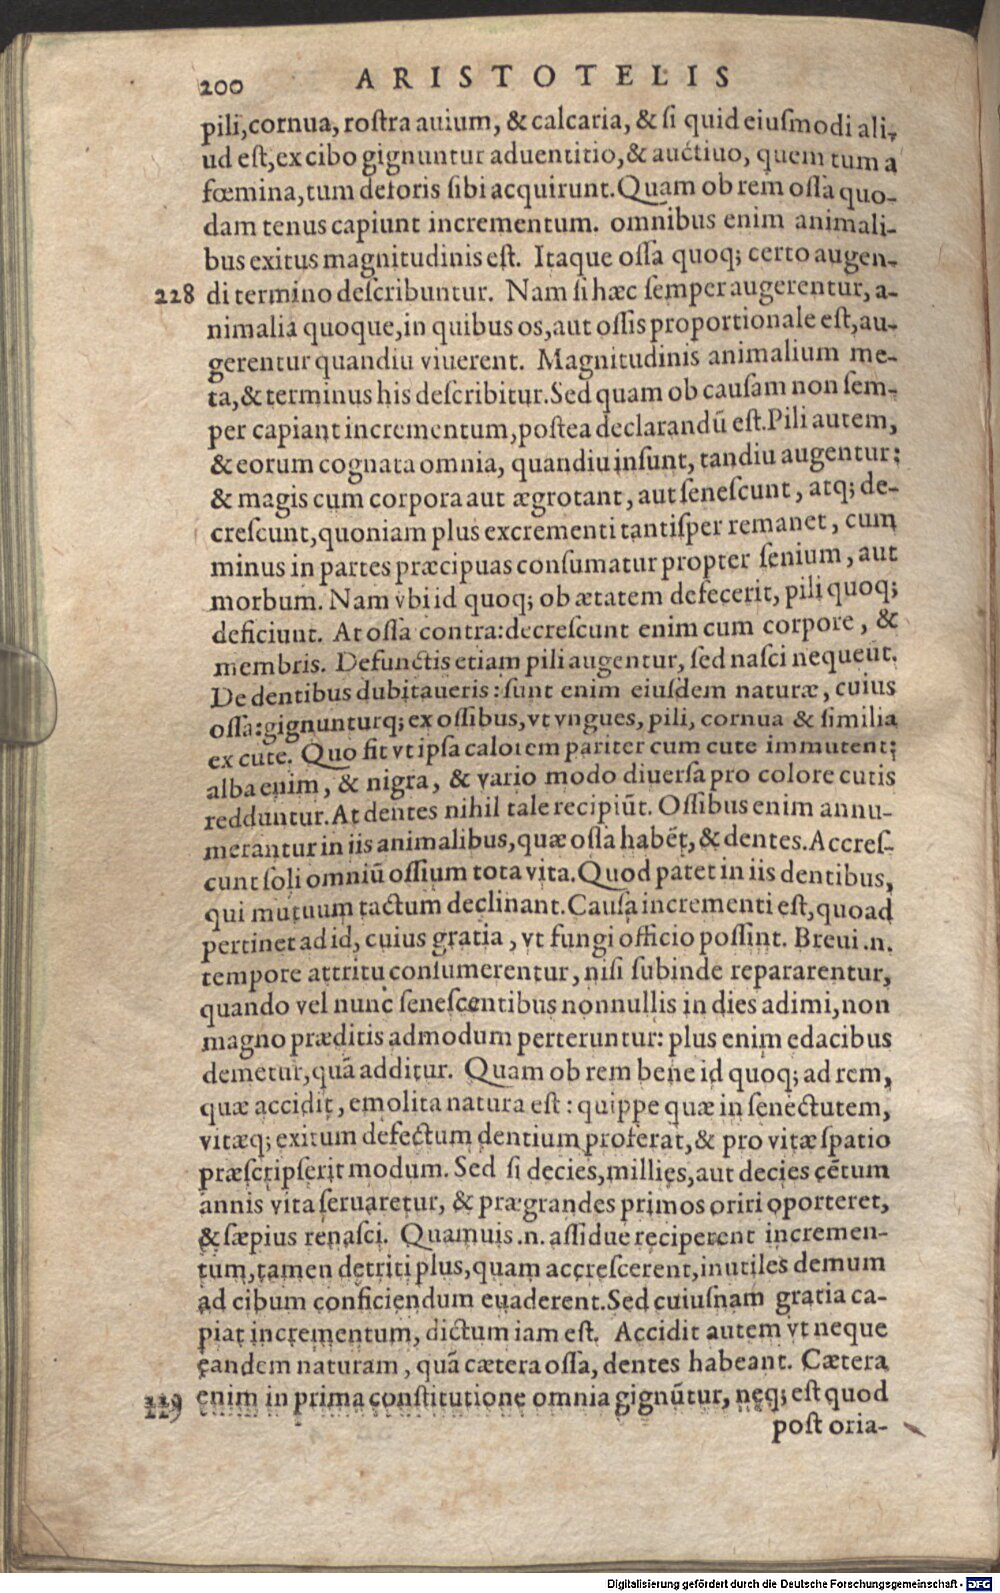 200 ARISTOTELIS
pili, cornua, rostra auium, & calcaria, & si quid eiusmodi ali-
ud est, ex cibo gignuntur aduentitio, & auctiuo, quem tum a
fœmina, tum deforis sibi acquirunt. Quam ob rem ossa quo-
dam tenus capiunt incrementum. omnibus enim animali-
bus exitus magnitudinis est. Itaque ossa quoq; certo augen-
228 di termino describuntur. Nam si hæc semper augerentur, a-
nimalia quoque, in quibus os, aut ossis proportionale est, au-
gerentur quandiu viuerent. Magnitudinis animalium me-
ta, & terminus his describitur. Sed quam ob causam non sem-
per capiant incrementum, postea declarandū est. Pili autem,
& eorum cognata omnia, quandiu insunt, tandiu augentur:
& magis cum corpora aut ægrotant, aut senescunt, atq; de-
crescunt, quoniam plus excrementi tantisper remanet, cum
minus in partes præcipuas consumatur propter senium, aut
morbum. Nam vbi id quoq; ob ætatem defecerit, pili quoq;
deficiunt. At ossa contra: decrescunt enim cum corpore, &
membris. Defunctis etiam pili augentur, sed nasci nequeūt.
De dentibus dubitaueris: sunt enim eiusdem naturæ, cuius
ossa: gignunturq; ex ossibus, vt vngues, pili, cornua & similia
ex cute. Quo fit vt ipsa calorem pariter cum cute immutent:
alba enim, & nigra, & vario modo diuersa pro colore cutis
redduntur. At dentes nihil tale recipiūt. Ossibus enim annu-
merantur in iis animalibus, quæ ossa habēt, & dentes. Accres-
cunt soli omniū ossium tota vita. Quod patet in iis dentibus,
qui mutuum tactum declinant. Causa incrementi est, quoad
pertinet ad id, cuius gratia, vt fungi officio possint. Breui .n.
tempore attritu consumerentur, nisi subinde repararentur,
quando vel nunc senescentibus nonnullis in dies adimi, non
magno præditis admodum perteruntur: plus enim edacibus
demetur, quā additur. Quam ob rem bene id quoq; ad rem,
quæ accidit, emolita natura est: quippe quæ in senectutem,
vitæq; exitum defectum dentium proferat, & pro vitæ spatio
præscripserit modum. Sed si decies, millies, aut decies cētum
annis vita seruaretur, & prægrandes primos oriri oporteret,
& sæpius renasci. Quamuis .n. assidue reciperent incremen-
tum, tamen detriti plus, quam accrescerent, inutiles demum
ad cibum conficiendum euaderent. Sed cuiusnam gratia ca-
piat incrementum, dictum iam est. Accidit autem vt neque
eandem naturam, quā cætera ossa, dentes habeant. Cætera
229 enim in prima constitutione omnia gignūtur, neq; est quod
post oria-
Digitalisierung gefördert durch die Deutsche Forschungsgemeinschaft - DFG